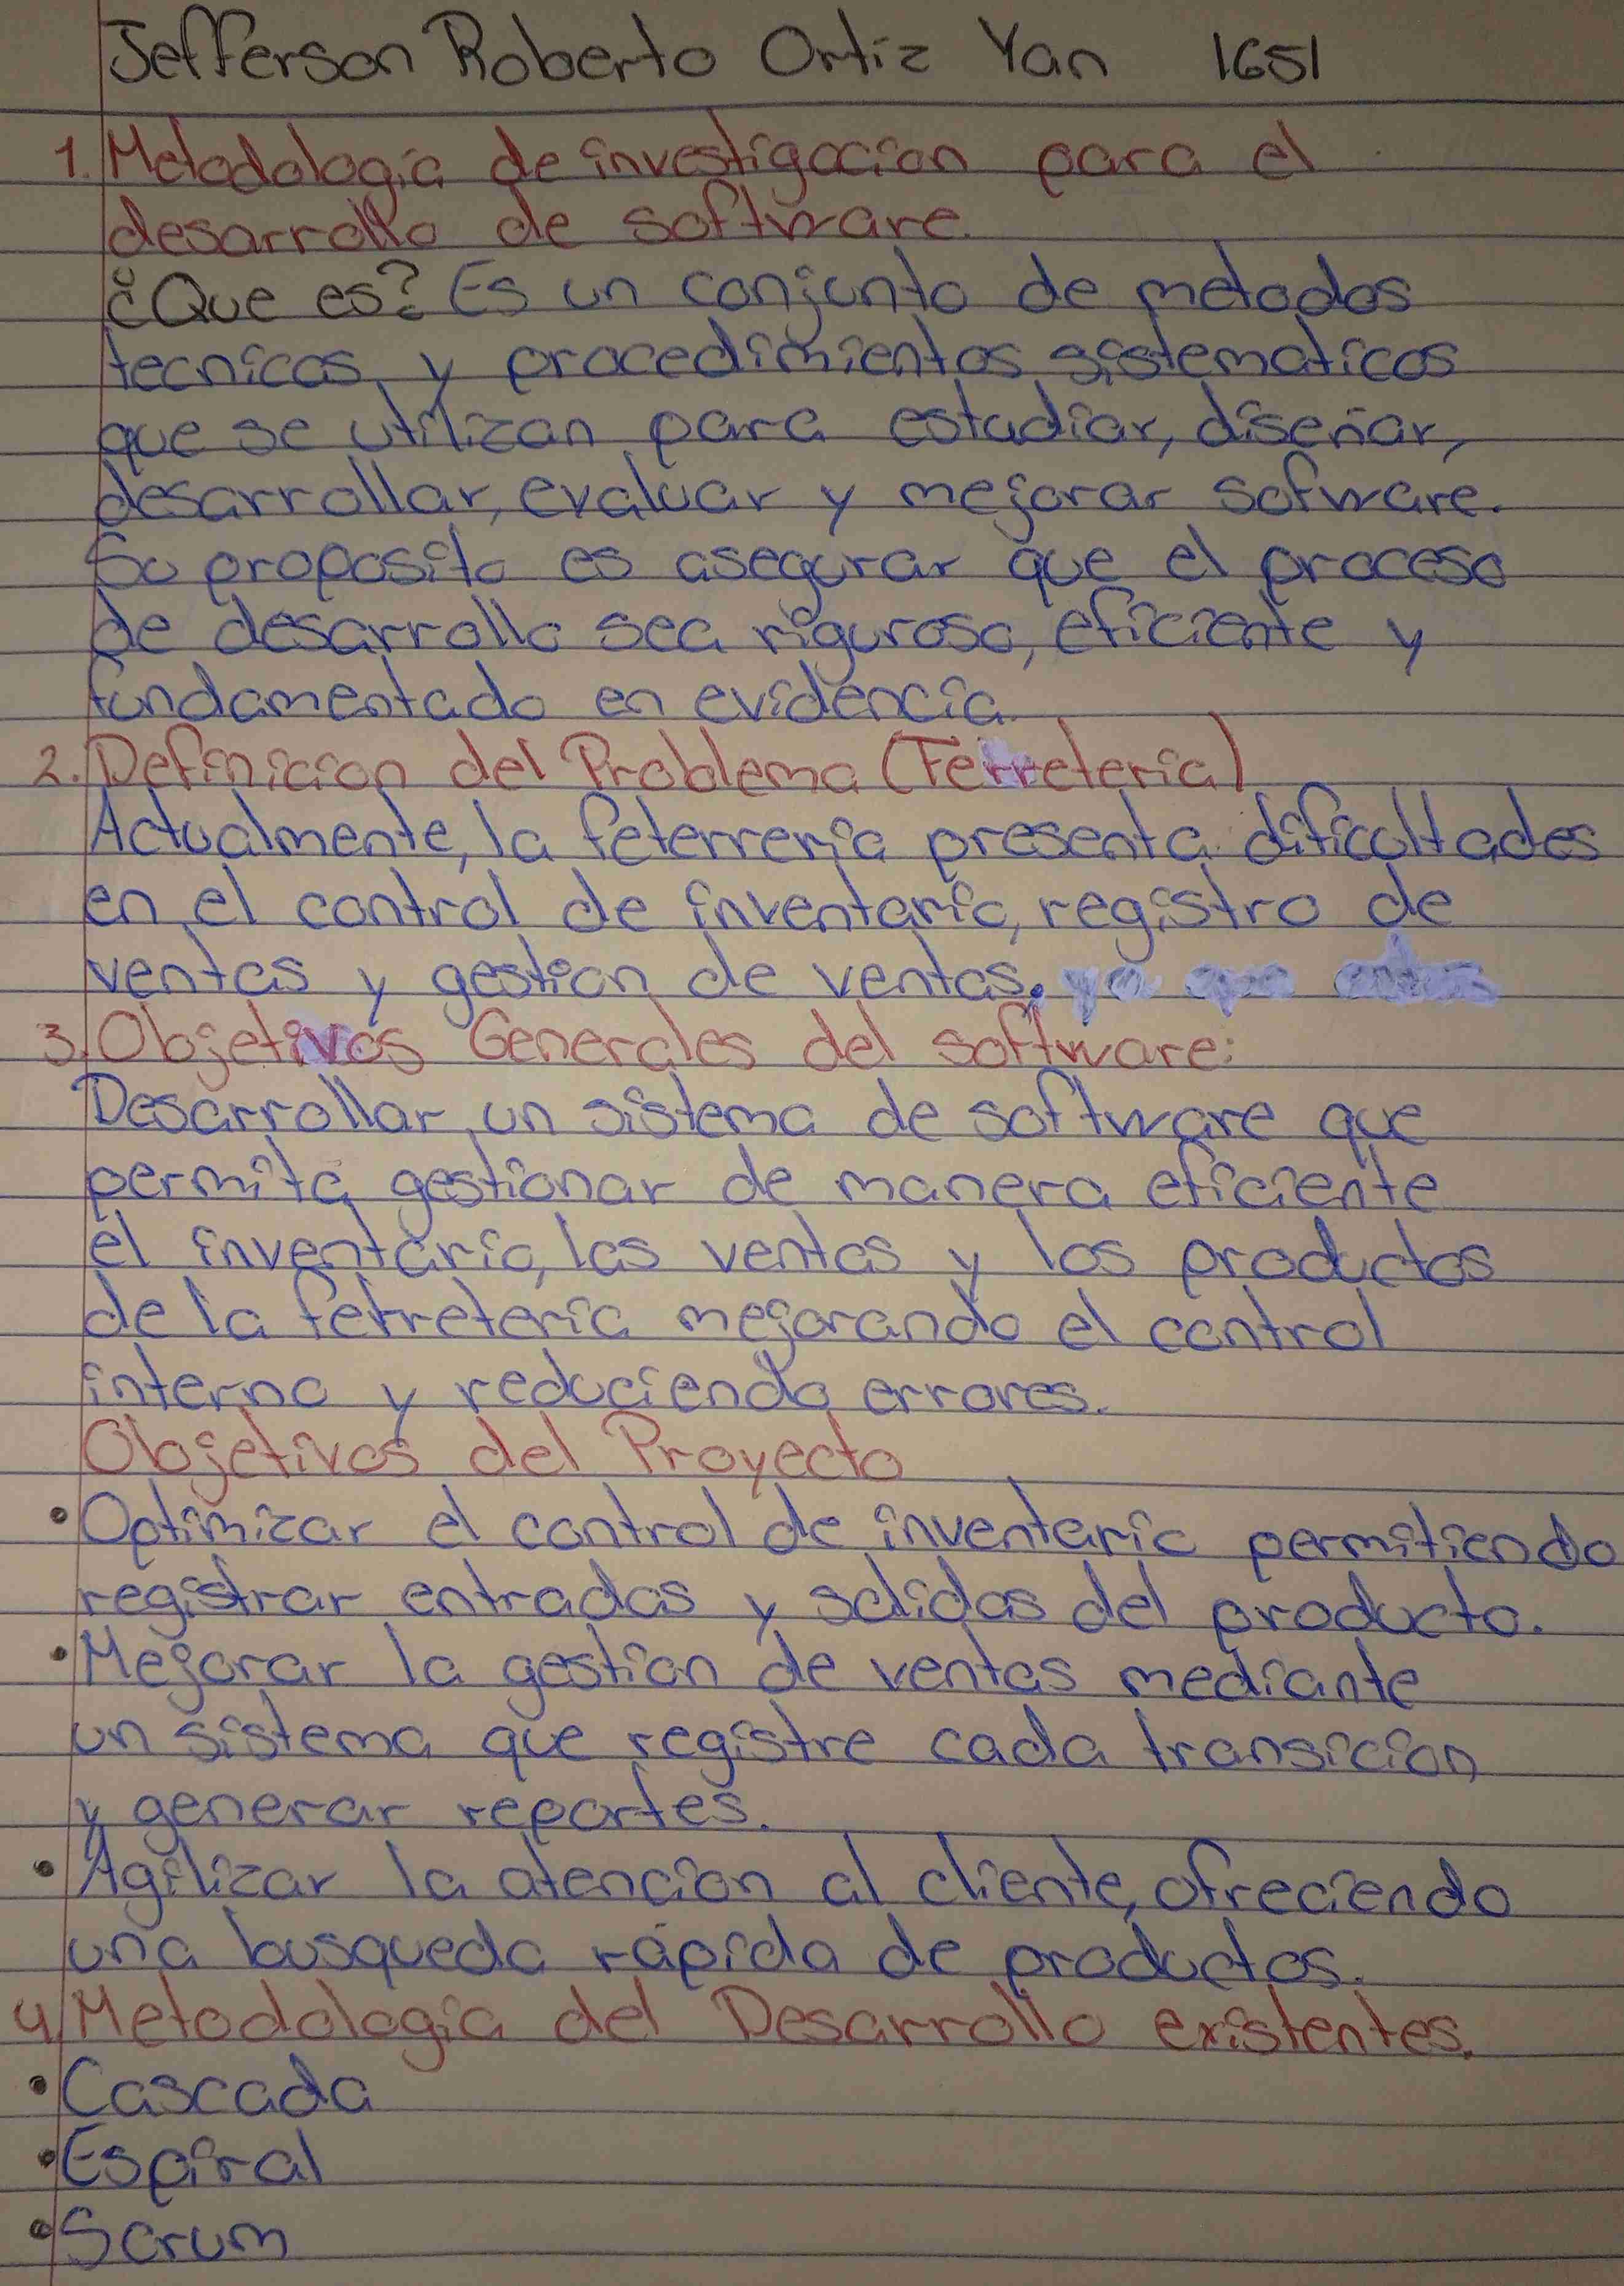 Jefferson Roberto Ortiz Yan 1651
1. Metodologia de investigacion para el
desarrollo de software.
¿Que es? Es un conjunto de metodos
tecnicas y procedimientos sistematicos
que se utilizan para estudiar, diseñar,
desarrollar, evaluar y mejorar sofware.
Su proposito es asegurar que el proceso
de desarrollo sea riguroso, eficiente y
fundamentado en evidencia.
2. Definicion del Problema (Ferreteria)
Actualmente, la feterreria presenta dificultades
en el control de inventario, registro de
ventas y gestion de ventas.
3. Objetivos Generales del software:
Desarrollar un sistema de software que
permita gestionar de manera eficiente
el inventario, las ventas y los productos
de la ferreteria mejorando el control
interno y reduciendo errores.
Objetivos del Proyecto
• Optimizar el control de inventario permitiendo
registrar entradas y salidas del producto.
• Mejorar la gestion de ventas mediante
un sistema que registre cada transicion
y generar reportes.
• Agilizar la atencion al cliente, ofreciendo
una busqueda rápida de productos.
4. Metodologia del Desarrollo existentes.
• Cascada
• Espiral
• Scrum